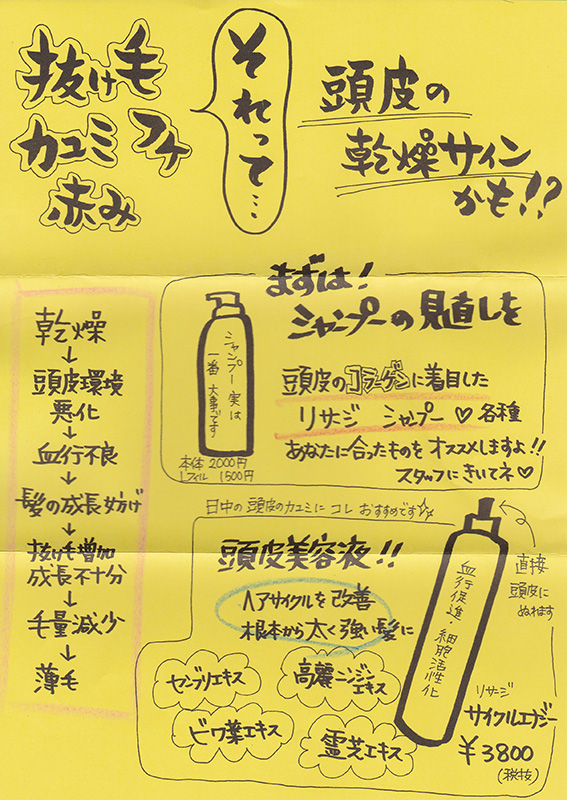 抜け毛
カユミ フケ
赤み
それって…
頭皮の
乾燥サイン
かも!?
乾燥
↓
頭皮環境
悪化
↓
血行不良
↓
髪の成長妨げ
↓
抜け毛増加
成長不十分
↓
毛量減少
↓
薄毛
まずは!
シャンプーの見直しを
シャンプー 実は
一番 大事です
本体 2000円
リフィル 1500円
頭皮のコラーゲンに着目した
リサジ シャンプー♡各種
あなたに合ったものをオススメしますよ!!
スタッフにきいてネ♡
日中の頭皮のカユミにコレおすすめです☆
頭皮美容液!!
ヘアサイクルを改善
根本から太く強い髪に
センブリエキス
高麗ニンジン
エキス
ビワ葉エキス
霊芝エキス
血行促進・細胞活性化
直接
頭皮に
ぬれます
リサージ
サイクルエナジー
¥3800
(税抜)